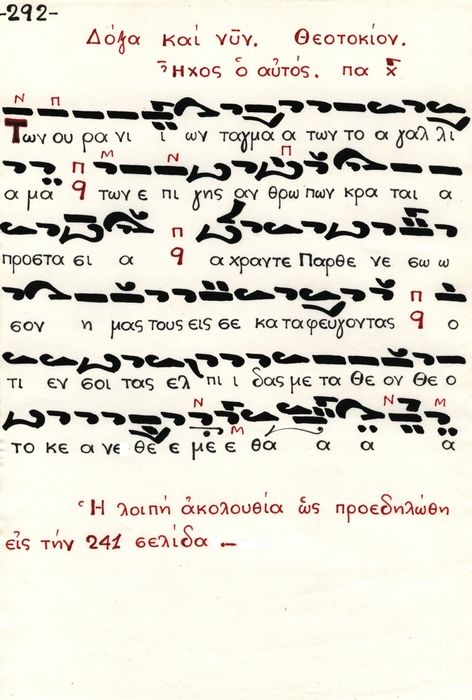 -292-
Δόξα καί νῦν. Θεοτοκίον.
Ἦχος ὁ αὐτός. πα
Ν Π
Των ου ρα νι ϊ ων ταγμα α των το α γαλ λι
Π Μ Ν Π
α μα των ε πι γης αν θρω πων κρα ται α
Π
προστα σι α α χραντε Παρθε νε σω ω
Π
σον η μας τους εις σε κα ταφευγοντας ο
τι εν σοι τας ελ πι ι δας με τα Θε ον Θε ο
Ν Μ Ν Μ
το κε α νε θε ε με ε θα α α α
Ἡ λοιπή ἀκολουθία ὡς προεδηλώθη
εἰς τήν 241 σελίδα